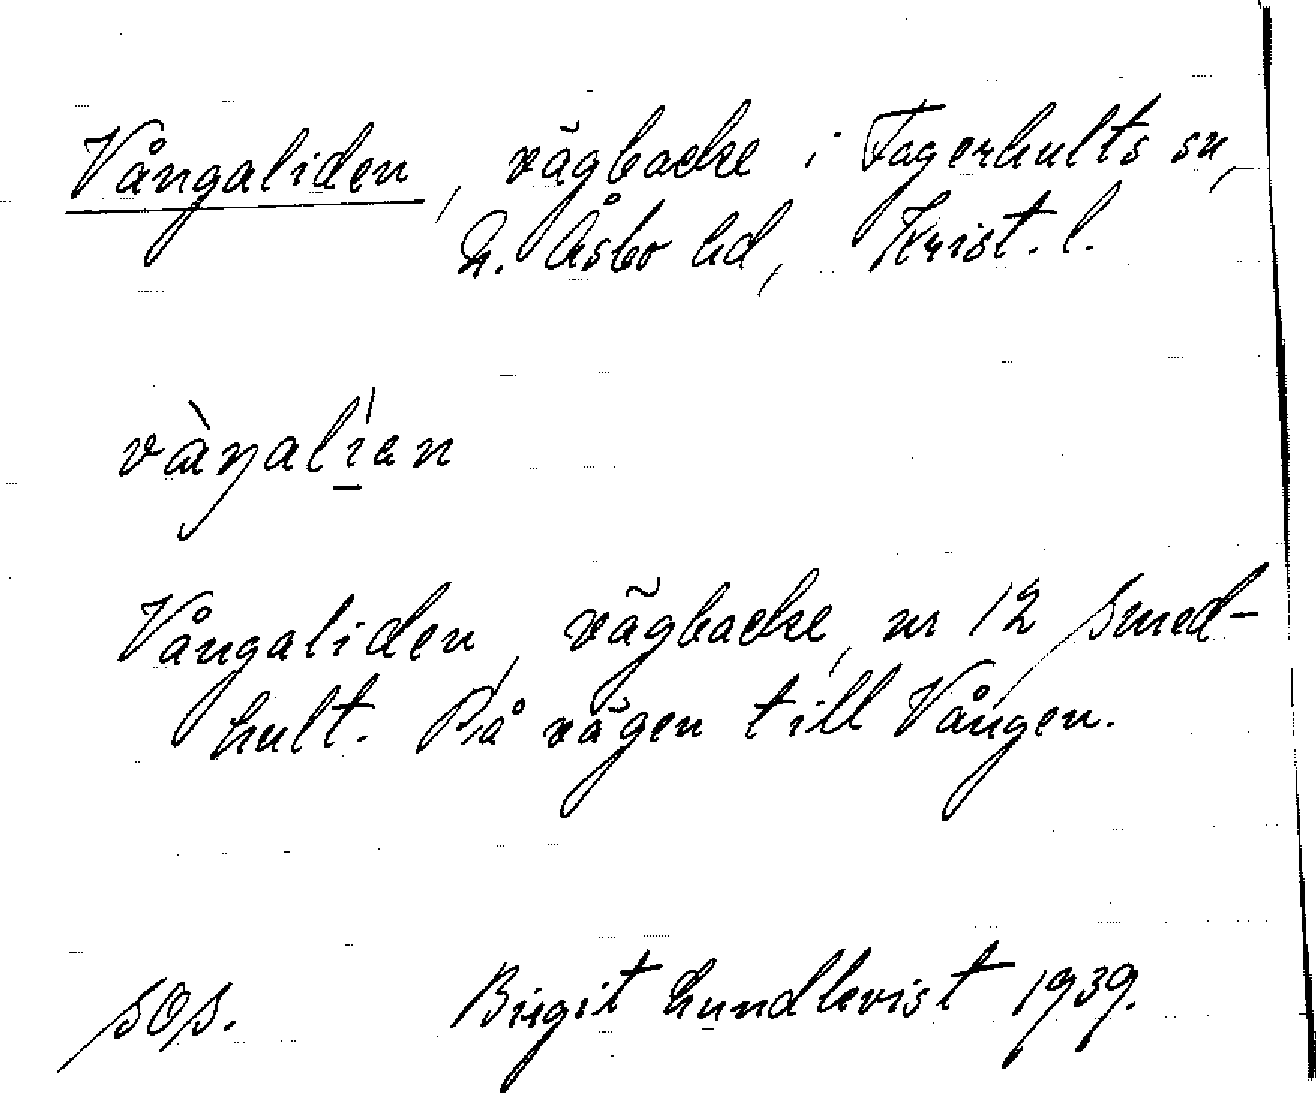 Vångaliden, vägbacke i Fagerhults sn,
N. Åsbo hd, Krist. l.
vàŋalíen
Vångaliden, vägbacke, nr 12 Smed-
hult. På vägen till Vången.
SOS. Birgit Lundkvist 1939.